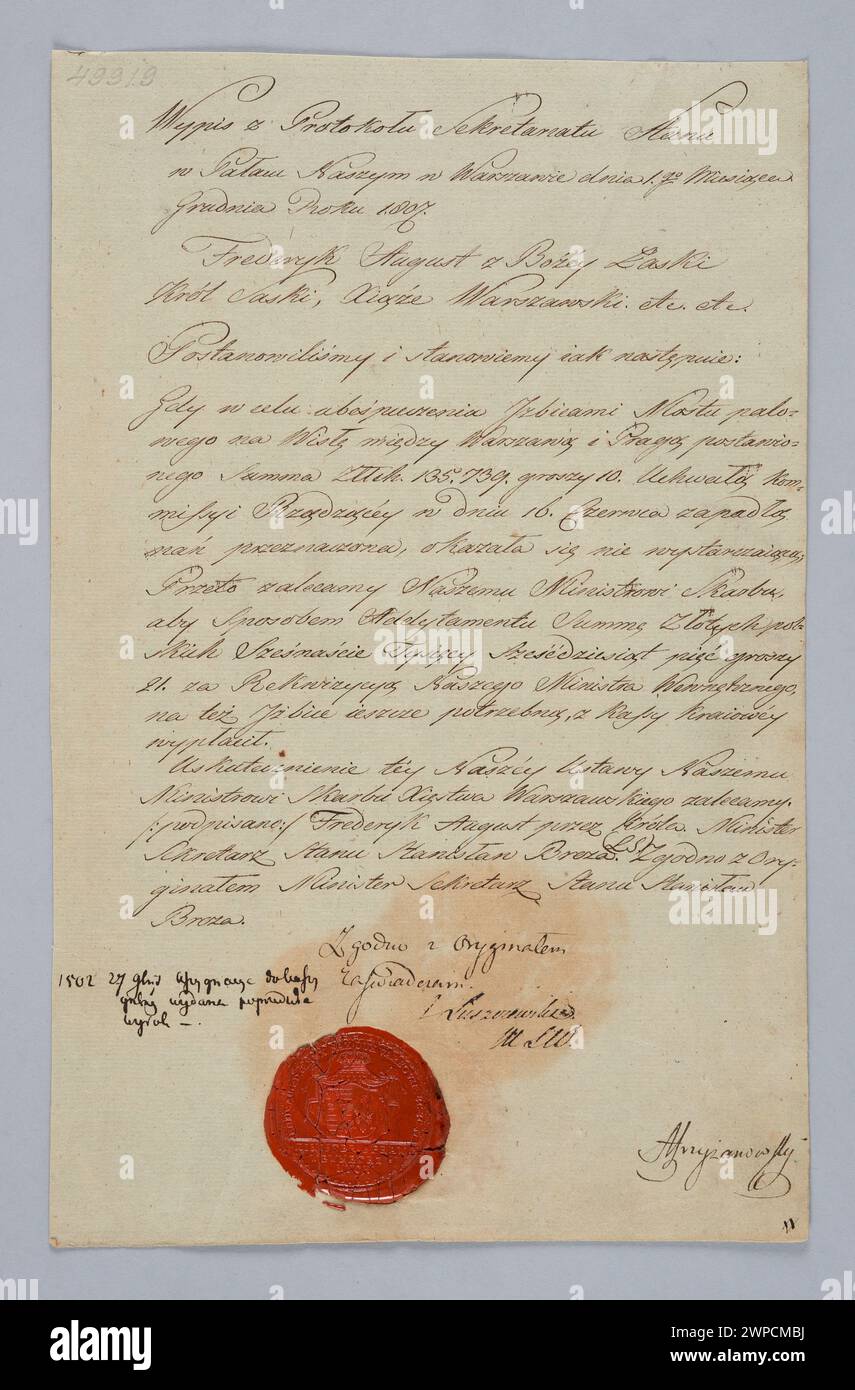 49919
Wypis z Protokołu Sekretariatu Stanu
w Pałacu Naszym w Warszawie dnia 1.go Miesiąca
Grudnia Roku 1807.
Frederyk August z Bożéy Łaski
Król Saski, Xiąże Warszawski. etc. etc.
Postanowiliśmy i stanowiemy iak następuie:
Gdy w celu abespieczenia Jzbicami Mostu palo-
wego na Wisłę między Warszawą i Pragą postawio-
nego Summa Złłch. 135.739. groszy 10. Uchwałą Kom-
missyi Rządzącéy w dniu 16. Czerwca zapadłą
nań przeznaczona, okazała się nie wystarczaiącą;
Przeto zalecamy Naszemu Ministrowi Skarbu,
aby Sposobem Addytamentu Summę Złotych pol-
skich Szesnaście Tysięcy Sześćdziesiąt pięć groszy
21. za Rekwizycyą Naszego Ministra Wewnętrznego,
na też Jzbice ieszcze potrzebną, z Kassy Kraiowéy
wypłacił.
Uskutecznienie téy Naszéy Ustawy Naszemu
Ministrowi Skarbu Xięstwa Warszawskiego zalecamy.
/:podpisano:/ Frederyk August przez Króla. Minister
Sekretarz Stanu Stanisław Breza. (LS) Zgodno z Ory-
ginałem Minister Sekretarz Stanu Stanisław
Breza.
Zgodno z Oryginałem
Zaświadczam.
1502 27 Assygnacya do kassy
wydana
Łuszczewski
MSW.
11
alamy
Image ID: 2WPCMBJ
www.alamy.com